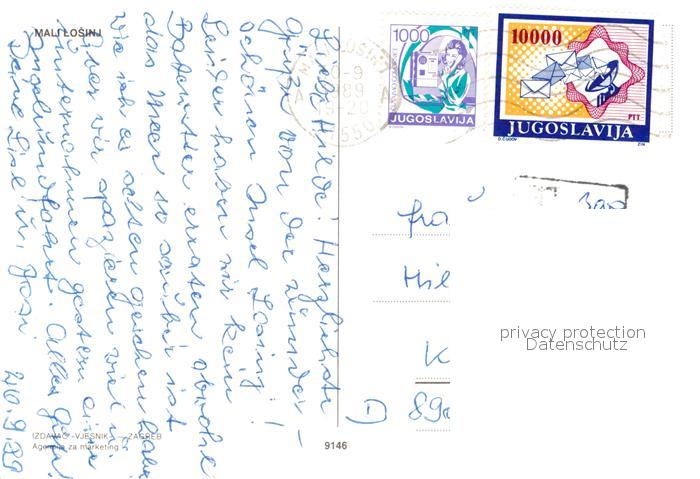 MALI LOŠINJ
Liebe Hilde! Herzlichste
Grüße von der wunder-
schönen Insel Losinj!
Leider haben wir kein
Badewetter erraten obwohl
das Meer so sauber ist
wie ich es selten gesehen habe
Aber wir spazieren viel u.
unternahmen gestern eine
Inselrundfahrt. Alles Gute
Deine Lise u.
20.9.89
IZDAVAČ-VJESNIK — ZAGREB
Agencija za marketing
9146
1000
JUGOSLAVIJA
10000
PTT
JUGOSLAVIJA
MALI LOŠINJ
1989
Hil
K
D 890
privacy protection
Datenschutz